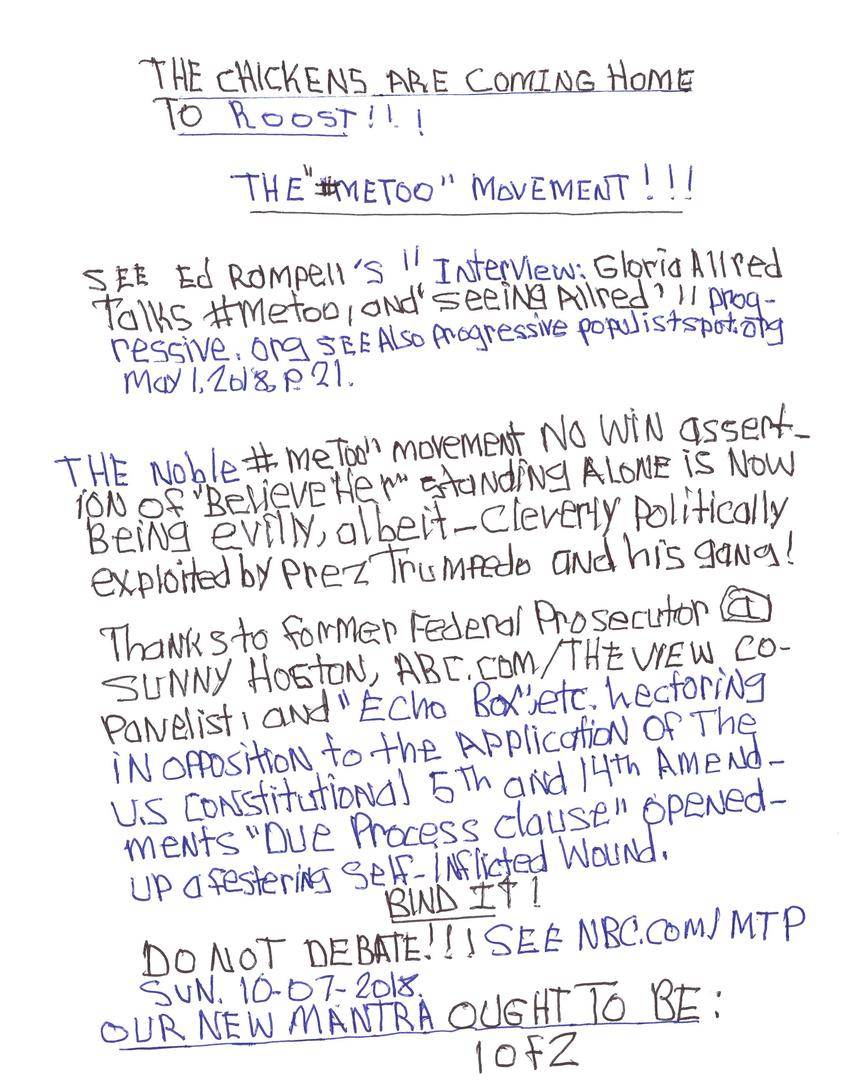 THE CHICKENS ARE COMING HOME
TO ROOST!!!
THE "#METOO" MOVEMENT!!!
SEE Ed Rampell's "Interview: Gloria Allred
Talks #Metoo, and 'seeing Allred'" prog-
ressive.org SEE Also Progressive populistspot.org
May 1, 2018, P 21.
THE Noble #meToo" movement NO WIN assert-
ION of "Believe Her" standing ALONE is NOW
Being evilly, albeit-cleverly Politically
exploited by Prez Trumpedo and his gang!
Thanks to former Federal Prosecutor @
SUNNY HOSTON, ABC.COM/THE VIEW CO-
Panelist, and "Echo Box", etc. hectoring
IN OPPOSITION to the APPlication Of The
U.S Constitutional 5th and 14th Amend-
ments "Due Process clause" opened-
UP a festering Self-Inflicted Wound.
BIND It!
DO NOT DEBATE!!! SEE NBC.COM/MTP
SUN. 10-07-2018.
OUR NEW MANTRA OUGHT TO BE:
1 of 2